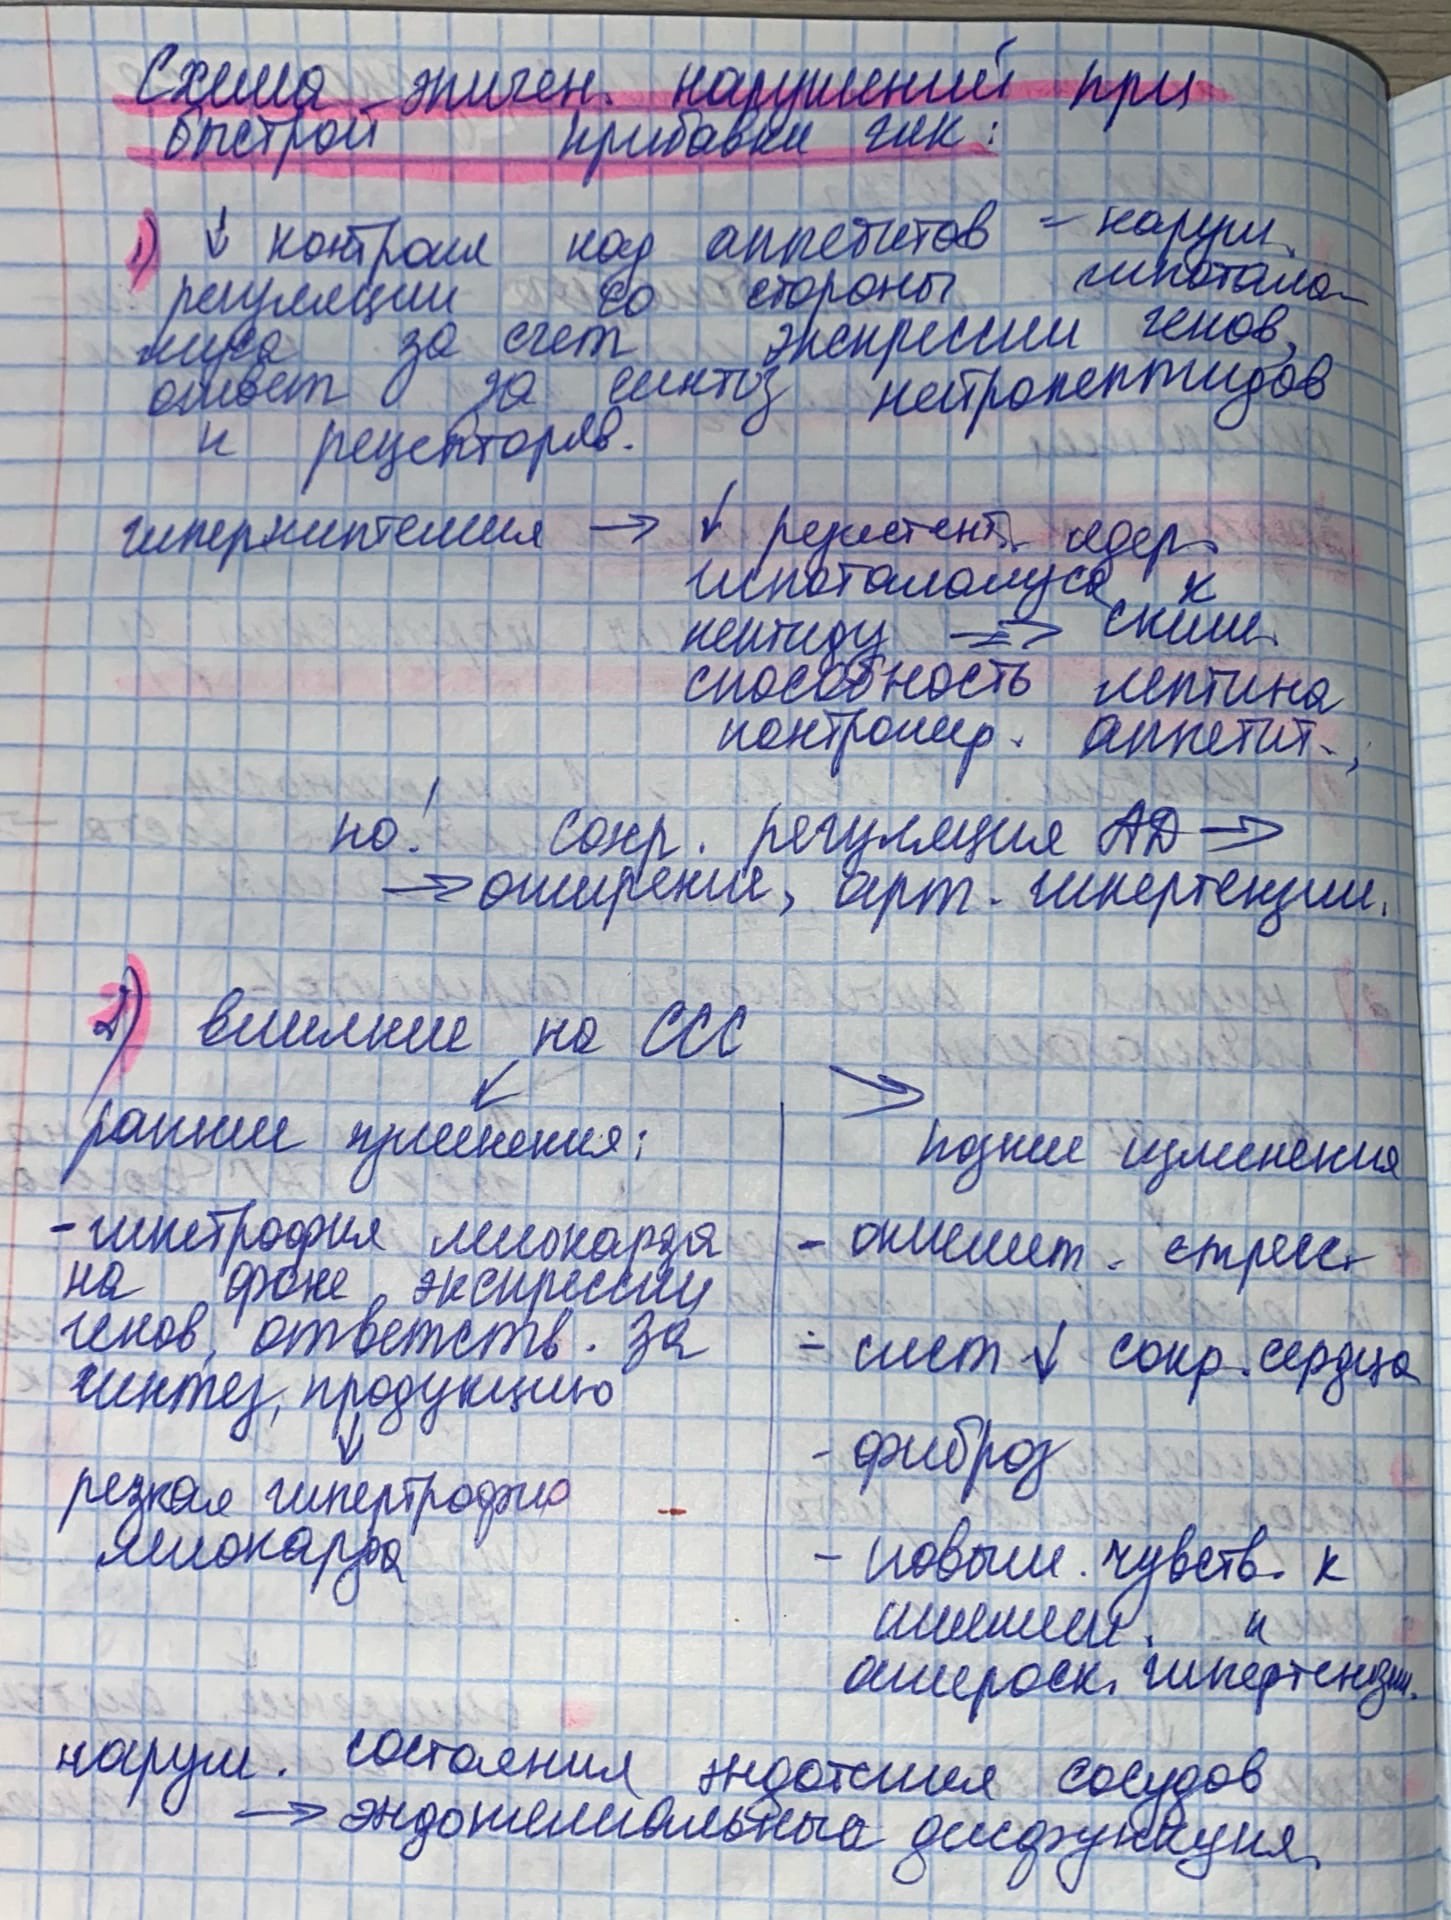 Схема эпиген. нарушений при
быстрой прибавки
1) ↓ контроля над аппетитов – наруш.
регуляции со стороны гипотала-
муса за счет экспрессии генов,
ответ за синтоз нейропептидов
и рецепторяв.
→ ↓ резистент. ядер
гипоталамуса к
пептиду => сниж.
способность лептина
контролир. аппетит.,
но! сохр. регуляция АД →
→ ожирение, арт. гипертензии.
2) влияние на ССС
↙ ↘
ранние изменения:
- гипетрофия миокарда
на фоне экспрессии
генов, ответств. за
синтез, продукцию
↓
резкая гипертрофию
миокарда
поздние изменения
- оксидат. стресс.
- сист ↓ сокр. сердца
- фиброз
- повыш. чувств. к
ишемии. и
гипертензии.
наруш. состояния эндотелия сосудов
→ эндотелиальная дисфункция.